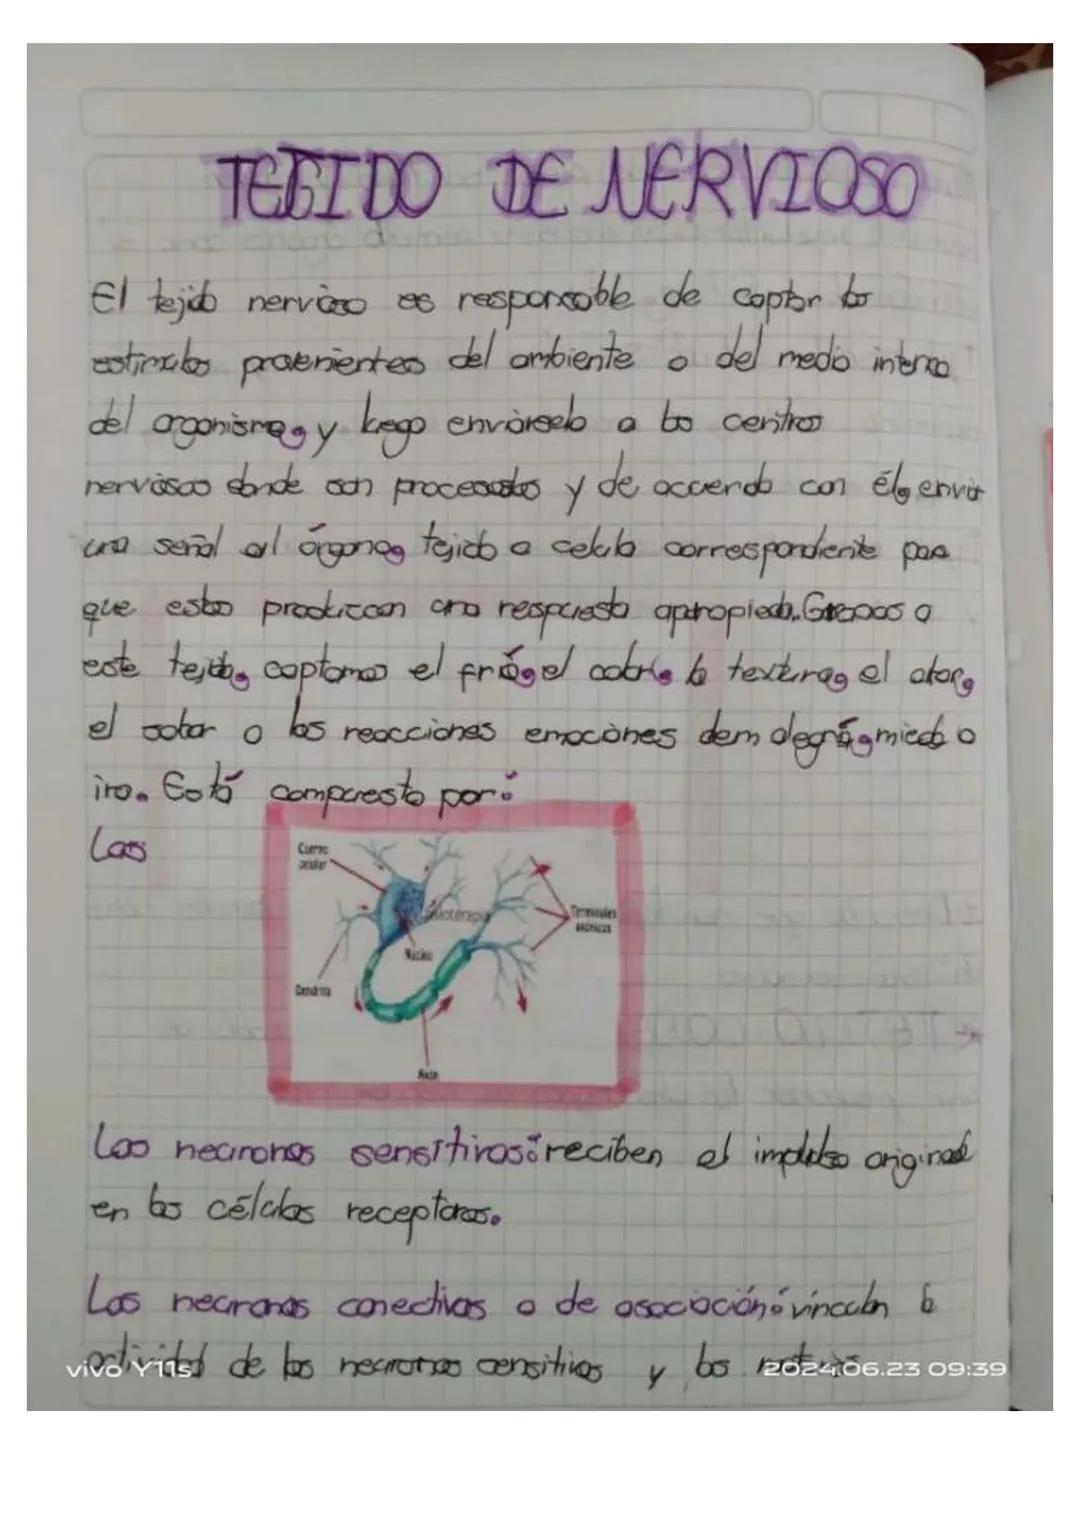 TEGIDO DE NERVIOSO
El tejido nervioso es responsable de captar los
estimulos provenientes del ambiente o del medio interno
del organismo, y luego enviárselo a los centros
nerviosos donde son procesados y de acuerdo con él, envia
una señal al órgano, tejido o celula correspondiente para
que estos produzcan una respuesta apropieda. Gracias a
este tejido, captamos el frío, el calor, la textura, el olor,
el sabor o las reacciones emociones dem alegría, miedo o
ira. Está compuesto por:
Las
Cuerpo
celular
fisioterapia
Terminales
axónicos
Núcleo
Dendrita
Axón
Las neuronas sensitivas: reciben el impulso original
en las células receptoras.
Las neuronas conectivas o de asociación: vinculan la
actividad de las neuronas sensitivas y las
vivo Y11s
2024.06.23 09:39